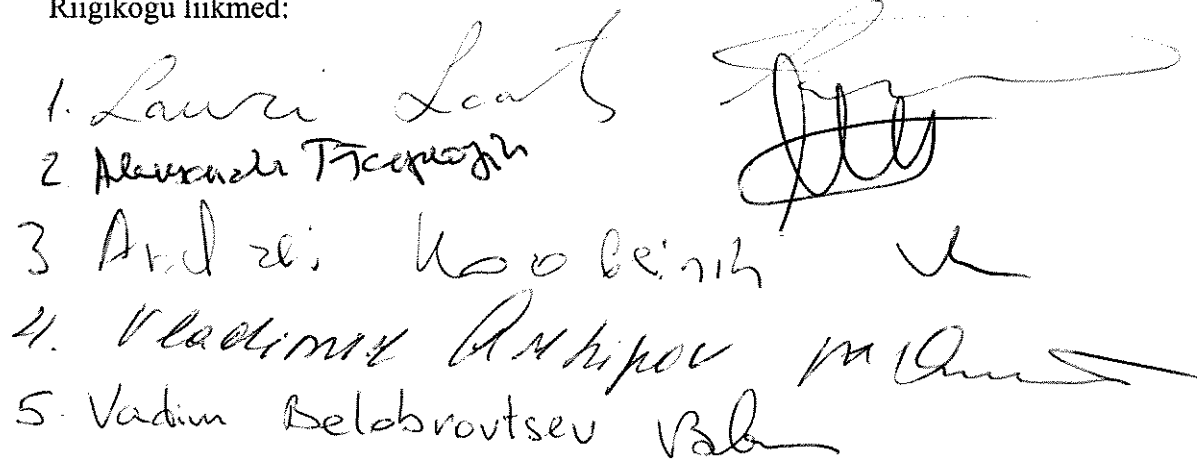 Riigikogu liikmed:
1. Lauri Laats
2. Aleksandr Tšaplõgin
3 Andrei Korobeinik
4. Vladimir Arhipov
5. Vadim Belobrovtsev